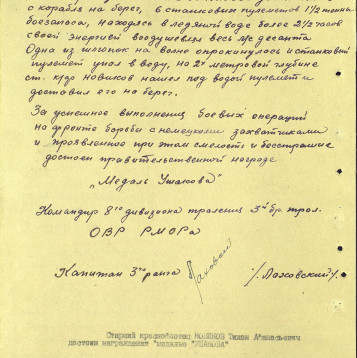 с корабля на берег, 6 станковых пулеметов 1½ тонны
боезапаса, находясь в ледяной воде более 2½ часов
своей энергией воодушевлял весь л/с десанта
Одна из шлюпок на волне опрокинулась и станковый
пулемет упал в воду, на 2х метровой глубине
ст. к/ф Новиков нашел под водой пулемет и
доставил его на берег.
За успешное выполнение боевых операций
на фронте борьбы с немецкими захватчиками
и проявленное при этом смелость и бесстрашие
достоен правительственной награде
„Медаль Ушакова"
Командир 8го дивизиона тральщиц 3й бр. трал.
ОВР РМОРа
Капитан 3го ранга /Лаховский/.
Старший краснофлотец НОВИКОВ Тихон Афанасьевич
достоин награждения "медалью "УШАКОВА"